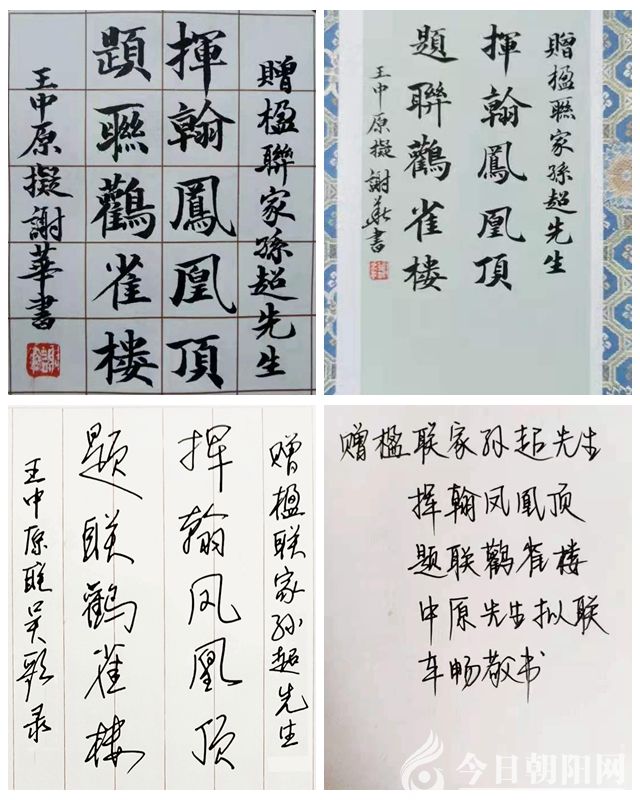 贈楹聯家孫超先生
揮翰鳳凰頂
題聯鸛雀楼
王中原擬謝華書
贈楹聯家孫超先生
揮翰鳳凰頂
題聯鸛雀楼
王中原擬謝華書
赠楹联家孙超先生
挥翰凤凰顶
题联鹳雀楼
王中原联吴歌录
赠楹联家孙超先生
挥翰凤凰顶
题联鹳雀楼
中原先生拟联
车畅敬书
今日朝阳网